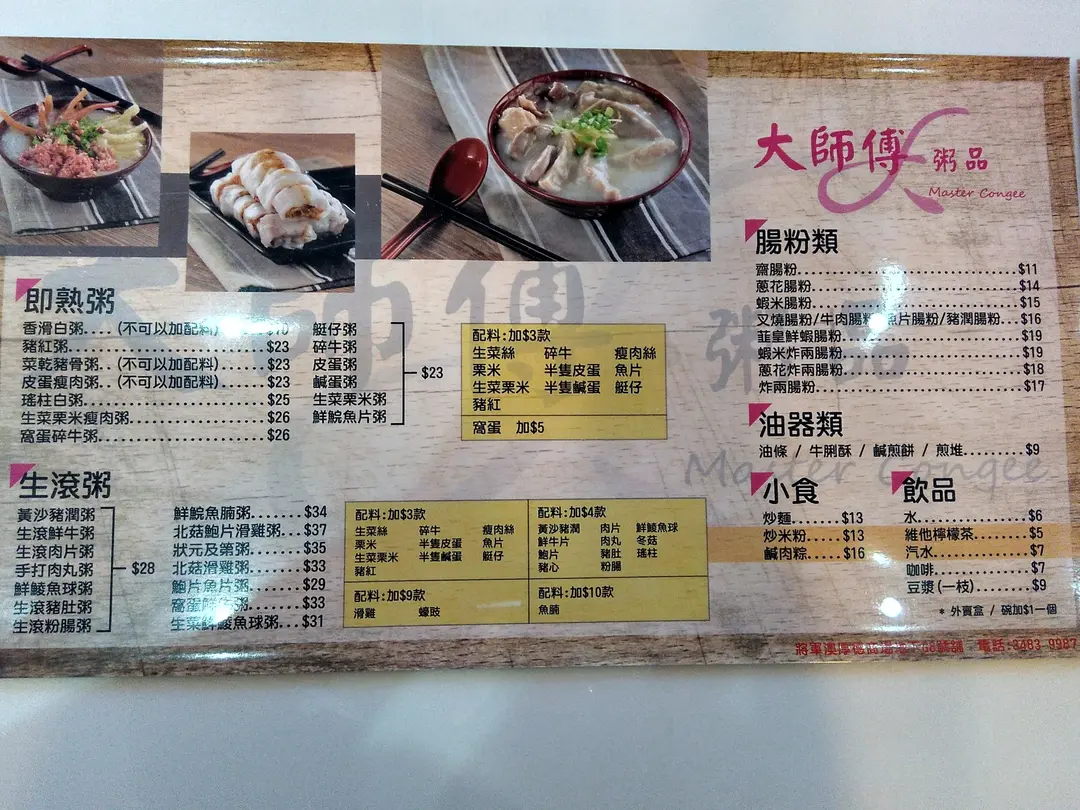 大師傅 粥品
Master Congee
即熟粥
香滑白粥....(不可以加配料) $10
豬紅粥....$23
菜乾豬骨粥..(不可以加配料)....$23
皮蛋瘦肉粥..(不可以加配料)....$23
瑤柱白粥....$25
生菜栗米瘦肉粥....$26
窩蛋碎牛粥....$26
艇仔粥
碎牛粥
皮蛋粥
鹹蛋粥
生菜栗米粥
鮮鯇魚片粥
$23
配料:加$3款
生菜絲 碎牛 瘦肉絲
栗米 半隻皮蛋 魚片
生菜栗米 半隻鹹蛋 艇仔
豬紅
窩蛋 加$5
生滾粥
黃沙豬潤粥
生滾鮮牛粥
生滾肉片粥
手打肉丸粥
鮮鯪魚球粥
生滾豬肚粥
生滾粉腸粥
$28
鮮鯇魚腩粥....$34
北菇鮑片滑雞粥...$37
狀元及第粥....$35
北菇滑雞粥....$33
鮑片魚片粥....$29
窩蛋鮮牛粥....$33
生菜鮮鯪魚球粥...$31
配料:加$3款
生菜絲 碎牛 瘦肉絲
栗米 半隻皮蛋 魚片
生菜栗米 半隻鹹蛋 艇仔
豬紅
配料:加$4款
黃沙豬潤 肉片 鮮鯪魚球
鮮牛片 肉丸 冬菇
鮑片 豬肚 瑤柱
豬心 粉腸
配料:加$9款
滑雞 蠔豉
配料:加$10款
魚腩
腸粉類
齋腸粉....$11
蔥花腸粉....$14
蝦米腸粉....$15
叉燒腸粉/牛肉腸粉/魚片腸粉/豬潤腸粉...$16
韮皇鮮蝦腸粉....$19
蝦米炸兩腸粉....$19
蔥花炸兩腸粉....$18
炸兩腸粉....$17
油器類
油條 / 牛脷酥 / 鹹煎餅 / 煎堆....$9
小食
炒麵....$13
炒米粉....$13
鹹肉粽....$16
飲品
水....$6
維他檸檬茶....$5
汽水....$7
咖啡....$7
豆漿(一枝)....$9
* 外賣盒 / 碗加$1一個
將軍澳厚德 號舖 電話:3483 9987
大師傅 粥品
Master Congee